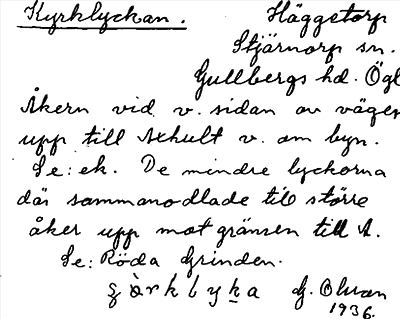 Kyrklyckan.
Häggetorp
Stjärnorp sn.
Gullbergs hd. Ögl
Åkern vid v. sidan av vägen
upp till Axhult v. om byn.
Se: ek. De mindre lyckorna
där sammanodlade till större
åker upp mot gränsen till A.
Se: Röda Grinden.
G. Olsson
1936.